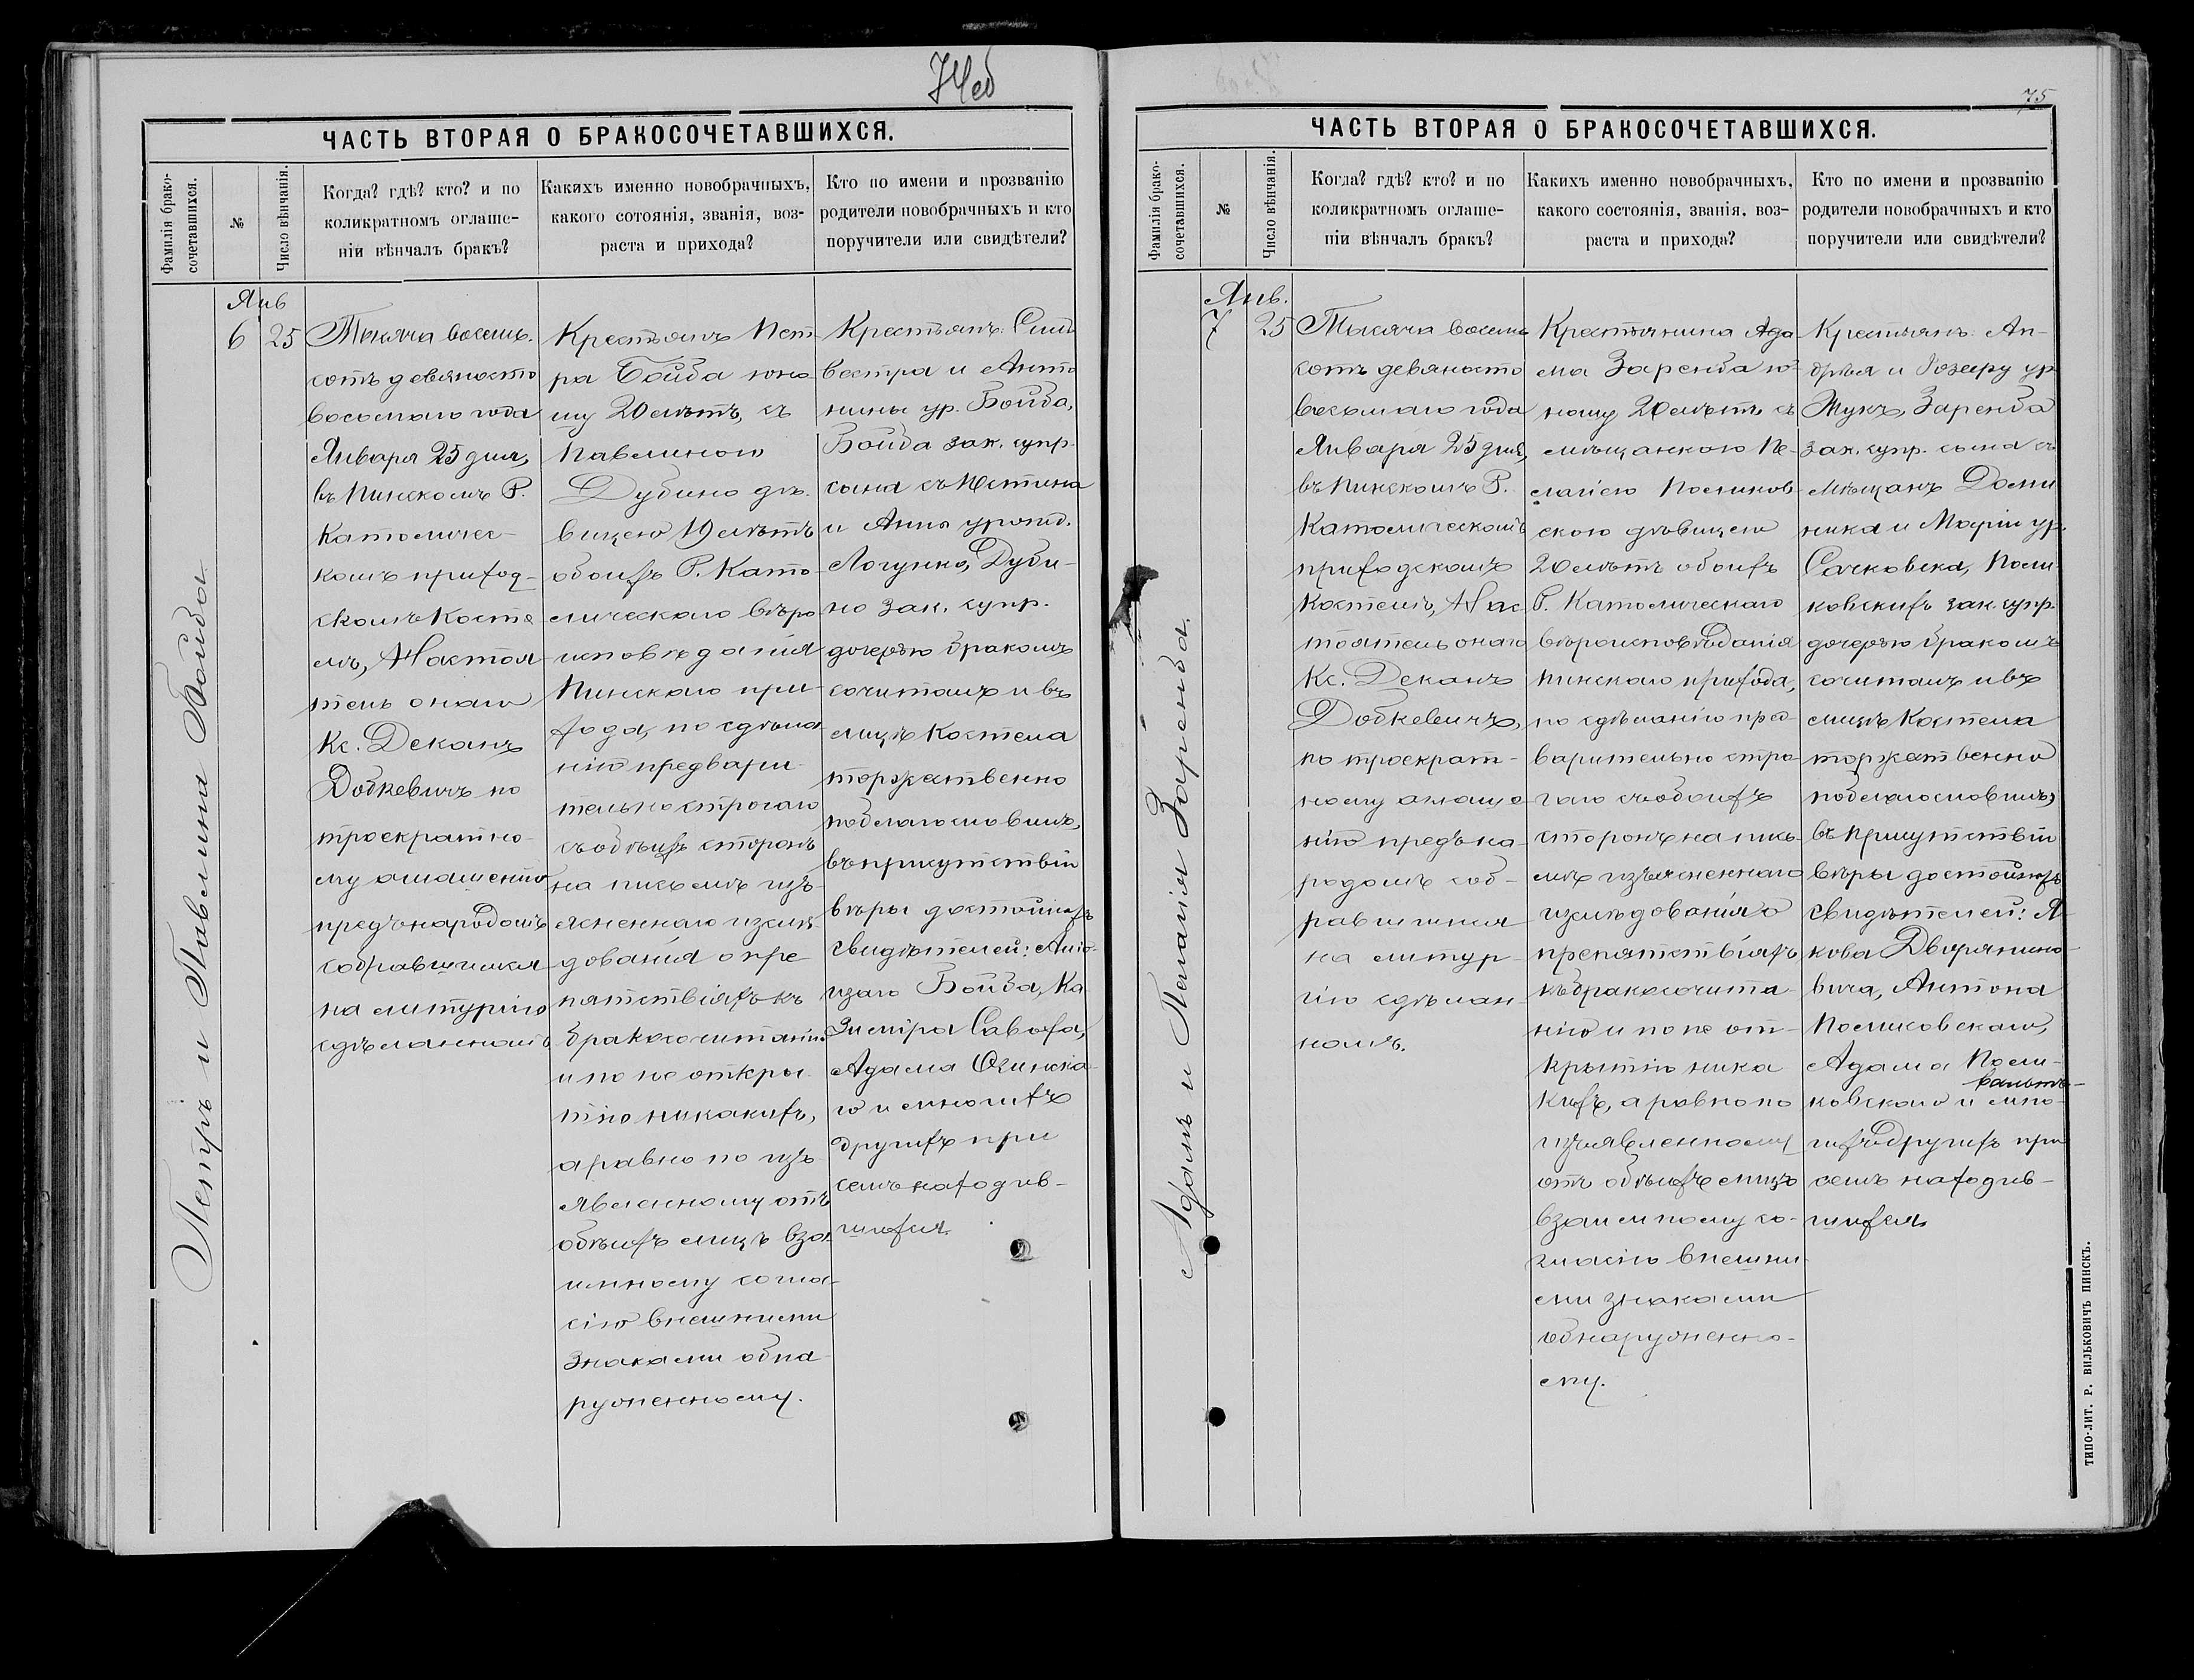 74об
ЧАСТЬ ВТОРАЯ О БРАКОСОЧЕТАВШИХСЯ.
Фамилія брако-
сочетавшихся.
№
Число вѣнчанія.
Когда? гдѣ? кто? и по
коликратномъ оглаше-
ніи вѣнчалъ бракъ?
Какихъ именно новобрачныхъ,
какого сотоянія, званія, воз-
раста и прихода?
Кто по имени и прозванію
родители новобрачныхъ и кто
поручители или свидѣтели?
Петръ и Павелина Бойба
Янв
6 25
Тысяча восемь
сотъ девяносто
восьмаго года
Января 25 дня,
въ Пинскомъ Р.
Католичес-
комъ приход-
скомъ Косте
лѣ, Настоя
тель онаго
Кс. Деканъ
Добкевичъ по
троекратно-
му оглашенію
предъ народомъ
собравшимся
на литургію
сдѣланномъ
Крестьянъ Пет
ра Бойба юно
шу 20 лѣтъ, съ
Павелиною
Дубино дѣ-
вицею 19 лѣтъ
обоихъ Р. Като-
лическаго вѣро
исповѣданія
Пинскаго при-
хода, по сдѣла
нію предвари-
тельно строгаго
съ обѣихъ сторонъ
на письмѣ изъ-
ясненнаго изслѣ-
дованія о пре
пятствіяхъ къ
бракосочитанію
и по не откры-
тію никакихъ,
а равно по изъ
явленному отъ
обѣихъ лицъ вза
имному согла-
сію внешними
знаками обна
руженному.
Крестьянъ: Силь
вестра и Анто
нины ур. Бойба,
Бойба зак. супр.
сына съ Юстина
и Анны урожд.
Логунко, Дуби-
но зак. супр.
дочерью бракомъ
сочиталъ и въ
лицѣ Костела
торжественно
поблагословилъ,
въ присутствіи
вѣры достойныхъ
свидѣтелей: Алю-
изаго Бойба, Ка
зиміра Саваха,
Адама Огинска-
го и многихъ
другихъ при
семъ находив-
шихся.
75
ЧАСТЬ ВТОРАЯ О БРАКОСОЧЕТАВШИХСЯ.
Фамилія брако-
сочетавшихся.
№
Число вѣнчанія.
Когда? гдѣ? кто? и по
коликратномъ оглаше-
ніи вѣнчалъ бракъ?
Какихъ именно новобрачныхъ,
какого состоянія, званія, воз-
раста и прихода?
Кто по имени и прозванію
родители новобрачныхъ и кто
поручители или свидѣтели?
Адамъ и Пелагія Заремба.
Янв.
7 25
Тысяча восемь
сотъ девяносто
восьмаго года
Января 25 дня,
въ Пинскомъ Р.
Католическомъ
приходскомъ
Костелѣ, Нас
тоятель онаго
Кс. Деканъ
Добкевичъ,
по троекрат-
ному оглаше
нію предъ на-
родомъ соб-
равшимся
на литур-
гію сдѣлан-
номъ.
Крестьянина Ада
ма Заремба ю-
ношу 20 лѣтъ съ
мѣщанкою Пе-
лагіею Посликов
скою дѣвицею
20 лѣтъ обоихъ
Р. Католическаго
вѣроисповѣданія
Пинскаго прихода,
по сдѣланію пред-
варительно стро-
гаго съ обоихъ
сторонъ на пись-
мѣ изъясненнаго
изслѣдованія о
препятствіяхъ
къ бракосочита-
нію и по не от-
крытію ника
кихъ, а равно по
изъявленному
отъ обѣихъ лицъ
взаимному со-
гласію внешни-
ми знаками
обнаруженно-
му.
Крестьянъ: Ан-
дрея и Розеру ур
Жукъ, Заремба
зак. супр. сына съ
мѣщанъ Доми
ника и Маріи ур.
Сачковска, Посли
ковскихъ зак. супр.
дочерью бракомъ
сочиталъ и въ
лицѣ Костела
торжественно
поблагословилъ,
въ присутствіи
вѣры достойныхъ
свидѣтелей: Я-
кова Дворянино-
вича, Антона
Посликовскаго,
Адама Посли-
ковскаго и мно-
гихъ другихъ при
семъ находив-
шихся.
ТИПО-ЛИТ. Р. ВИЛЬКОВИЧЪ ПИНСКЪ.